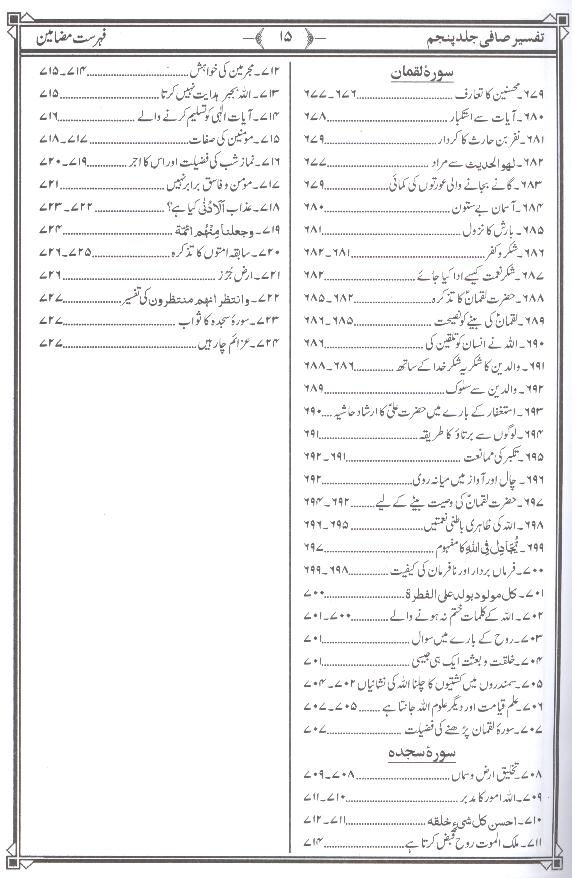 تفسیر صافی جلد پنجم
۱۵
فہرست مضامین
سورۂ لقمان
۶۷۹۔محسنین کا تعارف ........ ۶۷۶۔۶۷۷
۶۸۰۔آیات سے استکبار ........ ۶۷۸
۶۸۱۔نضر بن حارث کا کردار ........ ۶۷۹
۶۸۲۔لھو الحدیث سے مراد ........ ۶۷۷
۶۸۳۔گانے بجانے والی عورتوں کی کمائی ........ ۶۷۹
۶۸۴۔آسمان بے ستون ........ ۶۸۰
۶۸۵۔بارش کا نزول ........ ۶۸۱
۶۸۶۔شکر و کفر ........ ۶۸۱۔۶۸۲
۶۸۷۔شکر نعمت کیسے ادا کیا جائے ........ ۶۸۲
۶۸۸۔حضرت لقمانؑ کا تذکرہ ........ ۶۸۲۔۶۸۵
۶۸۹۔لقمانؑ کی بیٹے کو نصیحت ........ ۶۸۵۔۶۸۶
۶۹۰۔اللہ نے انسان کو تلقین کی ........ ۶۸۶
۶۹۱۔والدین کا شکریہ شکر خدا کے ساتھ ........ ۶۸۶۔۶۸۸
۶۹۲۔والدین سے سلوک ........ ۶۸۹
۶۹۳۔استغفار کے بارے میں حضرت علیؑ کا ارشاد حاشیہ .... ۶۹۰
۶۹۴۔لوگوں سے برتاؤ کا طریقہ ........ ۶۹۱
۶۹۵۔تکبر کی ممانعت ........ ۶۹۱۔۶۹۲
۶۹۶۔چال اور آواز میں میانہ روی ........ ۶۹۲
۶۹۷۔حضرت لقمانؑ کی وصیت بیٹے کے لیے ........ ۶۹۲۔۶۹۴
۶۹۸۔اللہ کی ظاہری باطنی نعمتیں ........ ۶۹۵۔۶۹۶
۶۹۹۔یُّجَادِلُ فِی اللّٰہِ کا مفہوم ........ ۶۹۷
۷۰۰۔فرماں بردار اور نافرمان کی کیفیت ........ ۶۹۸۔۶۹۹
۷۰۱۔کل مولود یولد علی الفطرۃ ........ ۷۰۰
۷۰۲۔اللہ کے کلمات ختم نہ ہونے والے ........ ۷۰۰۔۷۰۱
۷۰۳۔روح کے بارے میں سوال ........ ۷۰۱
۷۰۴۔خلقت و بعثت ایک ہی جیسی ........ ۷۰۱
۷۰۵۔سمندروں میں کشتیوں کا چلنا اللہ کی نشانیاں ۷۰۲۔۷۰۴
۷۰۶۔علم قیامت اور دیگر علوم اللہ جانتا ہے ........ ۷۰۵۔۷۰۷
۷۰۷۔سورۂ لقمان پڑھنے کی فضیلت ........ ۷۰۷
سورۂ سجدہ
۷۰۸۔تخلیق ارض و سماں ........ ۷۰۸۔۷۰۹
۷۰۹۔اللہ امور کا مدبر ........ ۷۱۰۔۷۱۱
۷۱۰۔احسن کل شیٔ خلقہ ........ ۷۱۱۔۷۱۲
۷۱۱۔ملک الموت روح قبض کرتا ہے ........ ۷۱۴
۷۱۲۔مجرمین کی خواہش ........ ۷۱۴۔۷۱۵
۷۱۳۔اللہ بجبر ہدایت نہیں کرتا ........ ۷۱۵
۷۱۴۔آیات الٰہی کو تسلیم کرنے والے ........ ۷۱۶
۷۱۵۔مومنین کی صفات ........ ۷۱۷۔۷۱۸
۷۱۶۔نماز شب کی فضیلت اور اس کا اجر ........ ۷۱۹۔۷۲۰
۷۱۷۔مومن و فاسق برابر نہیں ........ ۷۲۱
۷۱۸۔عذاب اَلْاَدْنٰی کیا ہے؟ ........ ۷۲۲۔۷۲۳
۷۱۹۔وجعلنا منھم ائمۃ ........ ۷۲۴
۷۲۰۔سابقہ امتوں کا تذکرہ ........ ۷۲۵۔۷۲۶
۷۲۱۔ارض جُرُز ........ ۷۲۶
۷۲۲۔وانتظر انھم منتظرون کی تفسیر ........ ۷۲۷
۷۲۳۔سورۂ سجدہ کا ثواب ........ ۷۲۷
۷۲۴۔عزائم چار ہیں ........ ۷۲۷